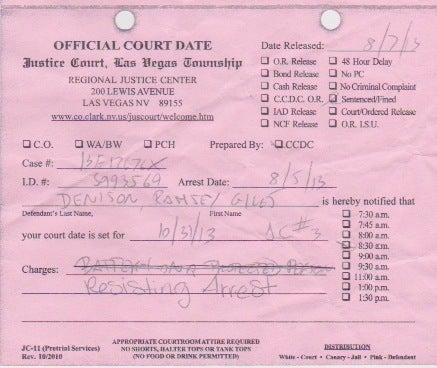 OFFICIAL COURT DATE
Justice Court, Las Vegas Township
REGIONAL JUSTICE CENTER
200 LEWIS AVENUE
LAS VEGAS NV 89155
www.co.clark.nv.us/juscourt/welcome.htm
Date Released: 8/7/13
☐ O.R. Release ☐ 48 Hour Delay
☐ Bond Release ☐ No PC
☐ Cash Release ☐ No Criminal Complaint
☐ C.C.D.C. O.R. ☑ Sentenced/Fined
☐ IAD Release ☐ Court/Ordered Release
☐ NCF Release ☐ O.R. I.S.U.
☐ C.O. ☐ WA/BW ☐ PCH Prepared By: ☑ CCDC
Case #:
I.D. #: 5993569 Arrest Date: 8/5/13
DENISON, RAMSEY GILES is hereby notified that
Defendant's Last Name, First Name
your court date is set for 10/31/13 JC #3
☐ 7:30 a.m.
☐ 7:45 a.m.
☐ 8:00 a.m.
☑ 8:30 a.m.
☐ 9:00 a.m.
☐ 9:30 a.m.
☐ 11:00 a.m.
☐ 1:00 p.m.
☐ 1:30 p.m.
Charges: BATTERY ON A PROTECTED PERSON
Resisting Arrest
JC-11 (Pretrial Services)
Rev. 10/2010
APPROPRIATE COURTROOM ATTIRE REQUIRED
NO SHORTS, HALTER TOPS OR TANK TOPS
(NO FOOD OR DRINK PERMITTED)
DISTRIBUTION
White - Court • Canary - Jail • Pink - Defendant